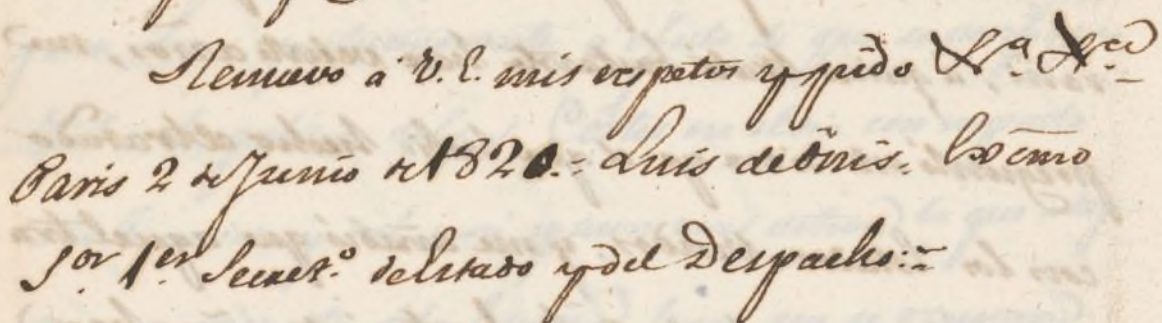 Renuevo á V. E. mis respetos y pido &.ª &.ª
Paris 2 de Junio de 1820.= Luis de Onis. Exc̄mo
S.or 1.er Secret.º de Estado y del Despacho:=